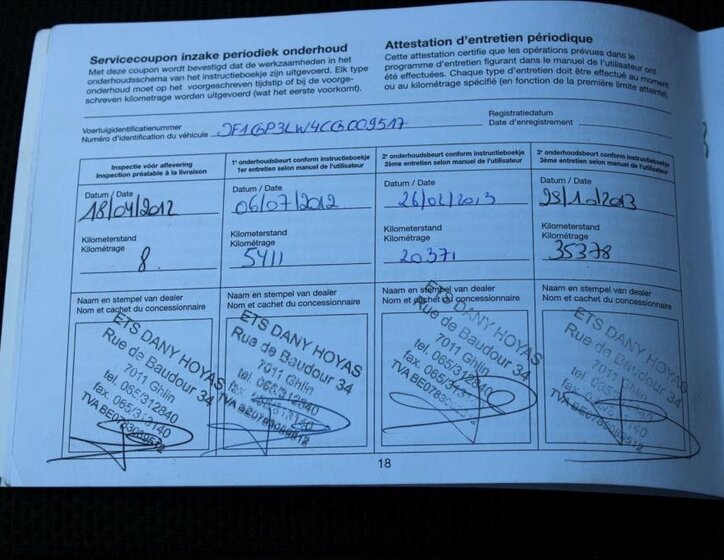 Servicecoupon inzake periodiek onderhoud
Met deze coupon wordt bevestigd dat de werkzaamheden in het
onderhoudsschema van het instructieboekje zijn uitgevoerd. Elk type
onderhoud moet op het voorgeschreven tijdstip of bij de voorge-
schreven kilometrage worden uitgevoerd (wat het eerste voorkomt).
Attestation d'entretien périodique
Cette attestation certifie que les opérations prévues dans le
programme d'entretien figurant dans le manuel de l'utilisateur ont
été effectuées. Chaque type d'entretien doit être effectué au moment
ou au kilométrage spécifié (en fonction de la première limite atteinte).
Voertuigidentificatienummer
Numéro d'identification du véhicule JF1GP3LW4CG009517
Registratiedatum
Date d'enregistrement
Inspectie vóór aflevering
Inspection préalable à la livraison
Datum / Date
18/04/2012
Kilometerstand
Kilométrage
8.
Naam en stempel van dealer
Nom et cachet du concessionnaire
ETS DANY HOYAS
Rue de Baudour 34
7011 Ghlin
tel. 065/312840
fax. 065/313140
TVA BE0783089512
1e onderhoudsbeurt conform instructieboekje
1er entretien selon manuel de l'utilisateur
Datum / Date
06/07/2012
Kilometerstand
Kilométrage
5411
Naam en stempel van dealer
Nom et cachet du concessionnaire
ETS DANY HOYAS
Rue de Baudour 34
7011 Ghlin
tel. 065/312840
fax. 065/313140
TVA BE0783089512
2e onderhoudsbeurt conform instructieboekje
2ème entretien selon manuel de l'utilisateur
Datum / Date
26/02/2013
Kilometerstand
Kilométrage
20371
Naam en stempel van dealer
Nom et cachet du concessionnaire
ETS DANY HOYAS
Rue de Baudour 34
7011 Ghlin
tel. 065/312840
fax. 065/313140
3e onderhoudsbeurt conform instructieboekje
3ème entretien selon manuel de l'utilisateur
Datum / Date
23/10/2013
Kilometerstand
Kilométrage
35378
Naam en stempel van dealer
Nom et cachet du concessionnaire
ETS DANY HOYAS
Rue de Baudour 34
7011 Ghlin
18